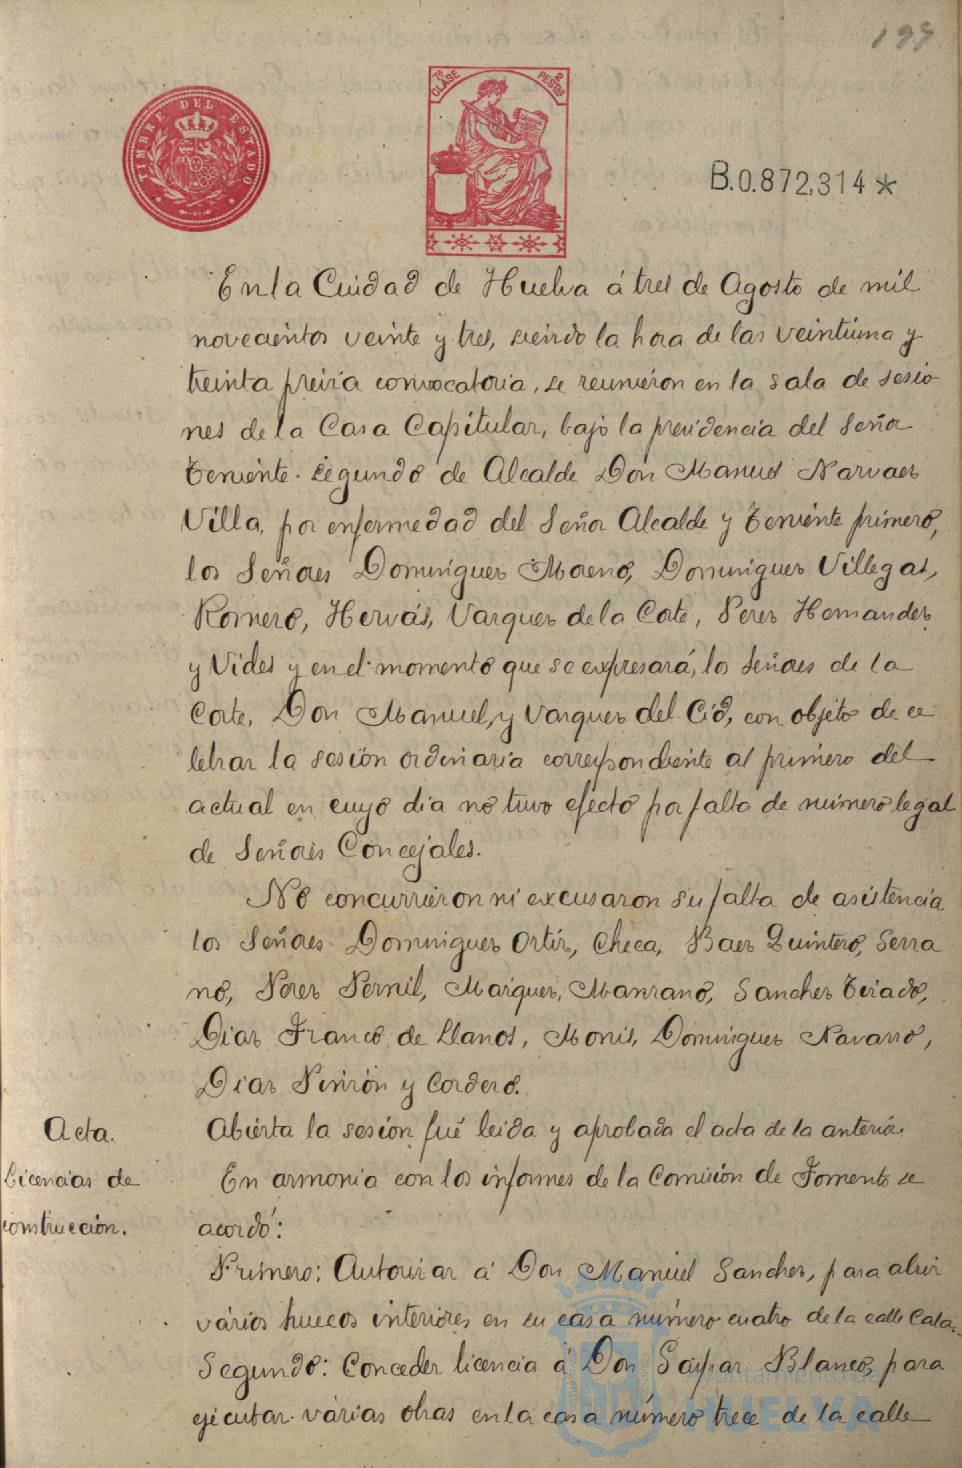 199
TIMBRE DEL ESTADO
7ª CLASE
2 PESETAS
B.0.872,314*
En la Ciudad de Huelva á tres de Agosto de mil
novecientos veinte y tres, siendo la hora de las veintiuna y
treinta previa convocatoria, se reunieron en la sala de sesio
nes de la Casa Capitular, bajo la presidencia del Señor
Teniente segundo de Alcalde Don Manuel Narvaez
Villa, por enfermedad del Señor Alcalde y Teniente primero,
los Señores Dominguez Moreno, Dominguez Villegas,
Romero, Hervás, Vazquez de la Corte, Perez Hernandez
y Vides y en el momento que se expresará, los Señores de la
Corte, Don Manuel, y Vazquez del Cid, con objeto de ce
lebrar la sesión ordinaria correspondiente al primero del
actual en cuyo dia no tuvo efecto por falta de número legal
de Señores Concejales.
No concurrieron ni excusaron su falta de asistencia
los Señores Dominguez Ortiz, Checa, Baez Quintero, Serra
no, Perez Pernil, Marquez, Manzano, Sanchez Tirado,
Diaz Franco de Llanos, Monis, Dominguez Navarro,
Diaz Pinzón y Cordero.
Acta.
Abierta la sesión fué leida y aprobada el acta de la anterior.
Licencias de
construcción.
En armonia con los informes de la Comisión de Fomento se
acordó:
Primero: Autorizar á Don Manuel Sanchez, para abrir
vários huecos interiores en su casa número cuatro de la calle Cala.
Segundo: Conceder licencia á Don Gaspar Blanco, para
ejecutar várias obras en la casa número trece de la calle
Ayuntamiento de
HUELVA